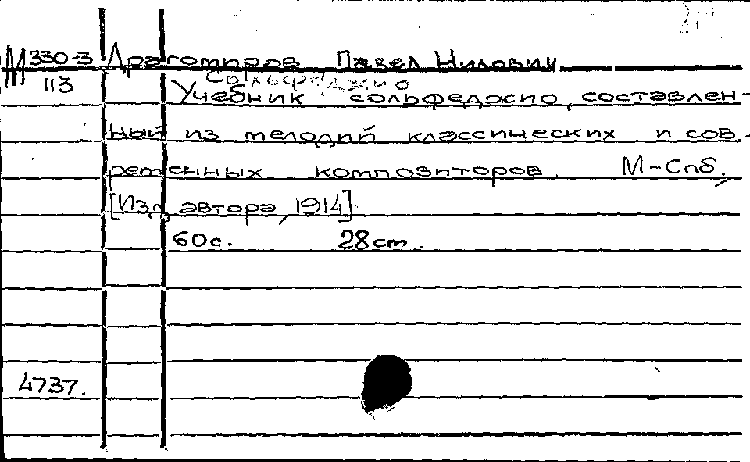 М 330-3 Драгомиров Павел Нилович
113 Сольфеджио
Учебник сольфеджио, составлен-
ный из мелодий классических и сов-
ременных композиторов. М-Спб,
[Изд. автора, 1914]
60с. 28см.
4737.